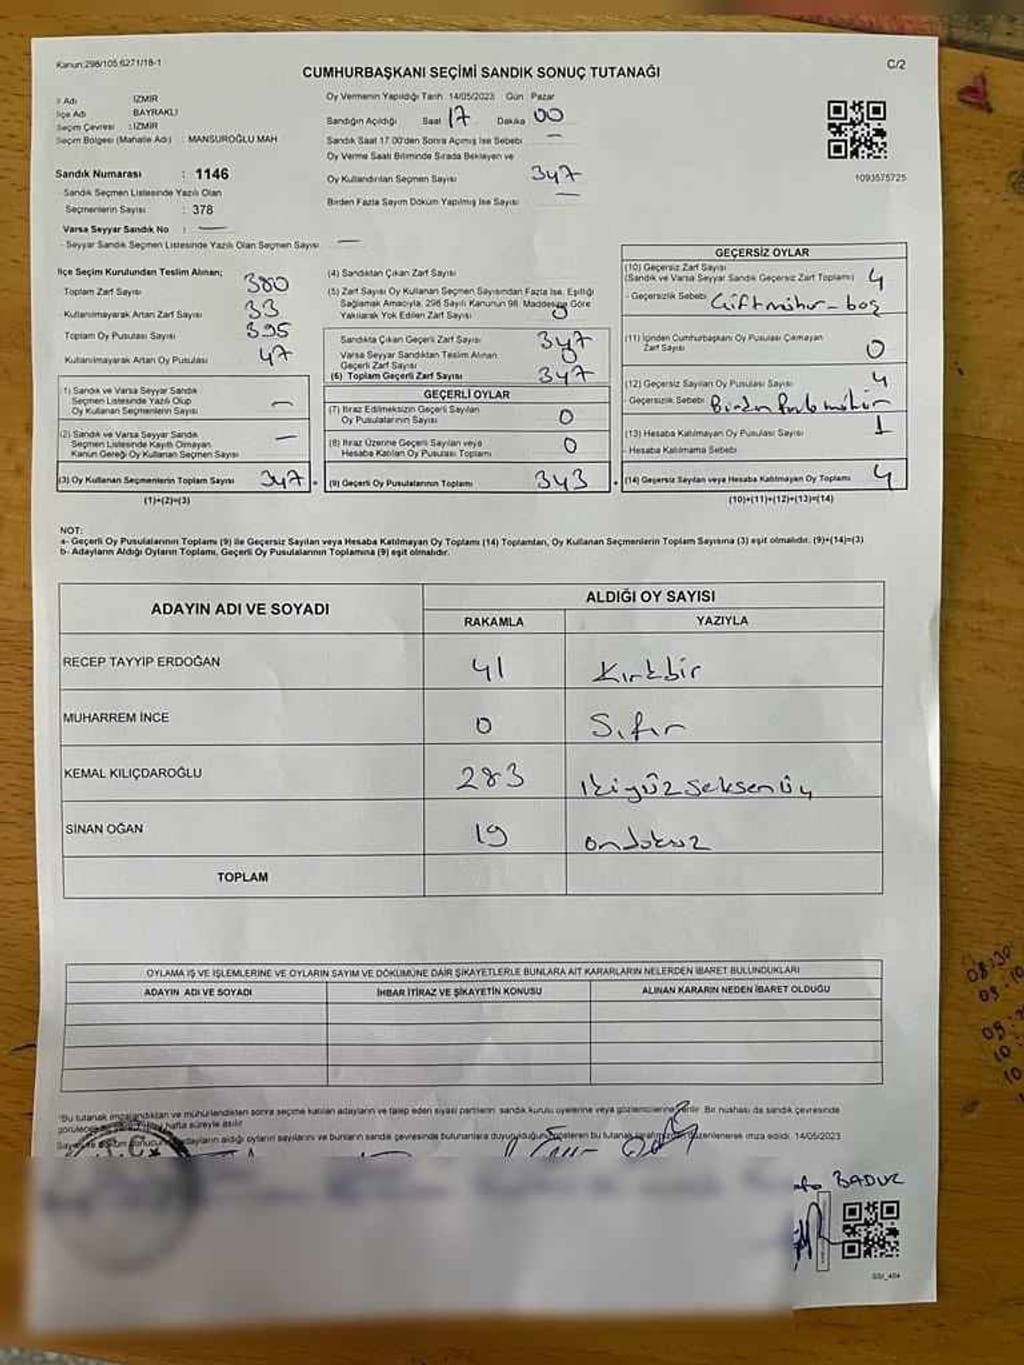 Kanun:298/105,6271/18-1
C/2
CUMHURBAŞKANI SEÇİMİ SANDIK SONUÇ TUTANAĞI
İl Adı İZMİR
İlçe Adı BAYRAKLI
Seçim Çevresi : İZMİR
Seçim Bölgesi (Mahalle Adı) : MANSUROĞLU MAH
Sandık Numarası : 1146
Sandık Seçmen Listesinde Yazılı Olan
Seçmenlerin Sayısı : 378
Varsa Seyyar Sandık No : —
- Seyyar Sandık Seçmen Listesinde Yazılı Olan Seçmen Sayısı —
Oy Vermenin Yapıldığı Tarih 14/05/2023 Gün Pazar
Sandığın Açıldığı Saat 17 Dakika 00
Sandık Saat 17.00'den Sonra Açmış İse Sebebi —
Oy Verme Saati Bitiminde Sırada Bekleyen ve
Oy Kullandırılan Seçmen Sayısı 347
Birden Fazla Sayım Döküm Yapılmış İse Sayısı —
1093575725
İlçe Seçim Kurulundan Teslim Alınan;
Toplam Zarf Sayısı 380
Kullanılmayarak Artan Zarf Sayısı 33
Toplam Oy Pusulası Sayısı 395
Kullanılmayarak Artan Oy Pusulası 47
(1) Sandık ve Varsa Seyyar Sandık
Seçmen Listesinde Yazılı Olup
Oy Kullanan Seçmenlerin Sayısı —
(2) Sandık ve Varsa Seyyar Sandık
Seçmen Listesinde Kayıtlı Olmayan
Kanun Gereği Oy Kullanan Seçmen Sayısı —
(3) Oy Kullanan Seçmenlerin Toplam Sayısı 347
(1)+(2)=(3)
(4) Sandıktan Çıkan Zarf Sayısı
(5) Zarf Sayısı Oy Kullanan Seçmen Sayısından Fazla İse, Eşitliği
Sağlamak Amacıyla, 298 Sayılı Kanunun 98. Maddesine Göre
Yakılarak Yok Edilen Zarf Sayısı 0
Sandıkta Çıkan Geçerli Zarf Sayısı 347
Varsa Seyyar Sandıktan Teslim Alınan
Geçerli Zarf Sayısı 0
(6) Toplam Geçerli Zarf Sayısı 347
GEÇERLİ OYLAR
(7) İtiraz Edilmeksizin Geçerli Sayılan
Oy Pusulalarının Sayısı 0
(8) İtiraz Üzerine Geçerli Sayılan veya
Hesaba Katılan Oy Pusulası Toplamı 0
(9) Geçerli Oy Pusulalarının Toplamı 343
GEÇERSİZ OYLAR
(10) Geçersiz Zarf Sayısı
(Sandık ve Varsa Seyyar Sandık Geçersiz Zarf Toplamı) 4
- Geçersizlik Sebebi Çift mühür - boş
(11) İçinden Cumhurbaşkanı Oy Pusulası Çıkmayan
Zarf Sayısı 0
(12) Geçersiz Sayılan Oy Pusulası Sayısı 4
- Geçersizlik Sebebi Birden fazla mühür
(13) Hesaba Katılmayan Oy Pusulası Sayısı 1
- Hesaba Katılmama Sebebi
(14) Geçersiz Sayılan veya Hesaba Katılmayan Oy Toplamı 4
(10)+(11)+(12)+(13)=(14)
NOT:
a- Geçerli Oy Pusulalarının Toplamı (9) ile Geçersiz Sayılan veya Hesaba Katılmayan Oy Toplamı (14) Toplamları, Oy Kullanan Seçmenlerin Toplam Sayısına (3) eşit olmalıdır. (9)+(14)=(3)
b- Adayların Aldığı Oyların Toplamı, Geçerli Oy Pusulalarının Toplamına (9) eşit olmalıdır.
ADAYIN ADI VE SOYADI
ALDIĞI OY SAYISI
RAKAMLA YAZIYLA
RECEP TAYYİP ERDOĞAN 41 Kırkbir
MUHARREM İNCE 0 Sıfır
KEMAL KILIÇDAROĞLU 283 İkiyüzseksenüç
SİNAN OĞAN 19 ondokuz
TOPLAM
OYLAMA İŞ VE İŞLEMLERİNE VE OYLARIN SAYIM VE DÖKÜMÜNE DAİR ŞİKAYETLERLE BUNLARA AİT KARARLARIN NELERDEN İBARET BULUNDUKLARI
ADAYIN ADI VE SOYADI İHBAR İTİRAZ VE ŞİKAYETİN KONUSU ALINAN KARARIN NEDEN İBARET OLDUĞU
*Bu tutanak imzalandıktan ve mühürlendikten sonra seçime katılan adayların ve talep eden siyasi partilerin sandık kurulu üyelerine veya gözlemcilerine verilir. Bir nüshası da sandık çevresinde
görülecek bir yere hafta süreyle asılır
adayların aldığı oyların sayılarını ve bunların sandık çevresinde bulunanlara duyurulduğunu gösteren bu tutanak düzenlenerek imza edildi. 14/05/2023
T.C.
BADUR
SSİ_404
08:30
09:10
09:
10
10